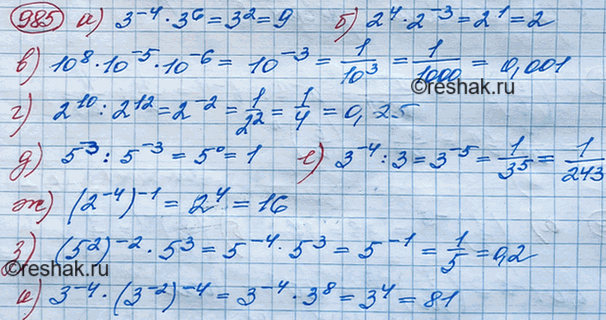 985 а) 3⁻⁴ · 3⁶ = 3² = 9 б) 2⁴ · 2⁻³ = 2¹ = 2
в) 10⁸ · 10⁻⁵ · 10⁻⁶ = 10⁻³ = 1/10³ = 1/1000 = 0,001
©reshak.ru
г) 2¹⁰ : 2¹² = 2⁻² = 1/2² = 1/4 = 0,25
д) 5⁻³ : 5⁻³ = 5⁰ = 1 е) 3⁻⁴ : 3 = 3⁻⁵ = 1/3⁵ = 1/243
ж) (2⁻⁴)⁻¹ = 2⁴ = 16
з) (5²)⁻² · 5³ = 5⁻⁴ · 5³ = 5⁻¹ = 1/5 = 0,2
©reshak.ru ©reshak.ru
и) 3⁻⁴ · (3⁻²)⁻⁴ = 3⁻⁴ · 3⁸ = 3⁴ = 81